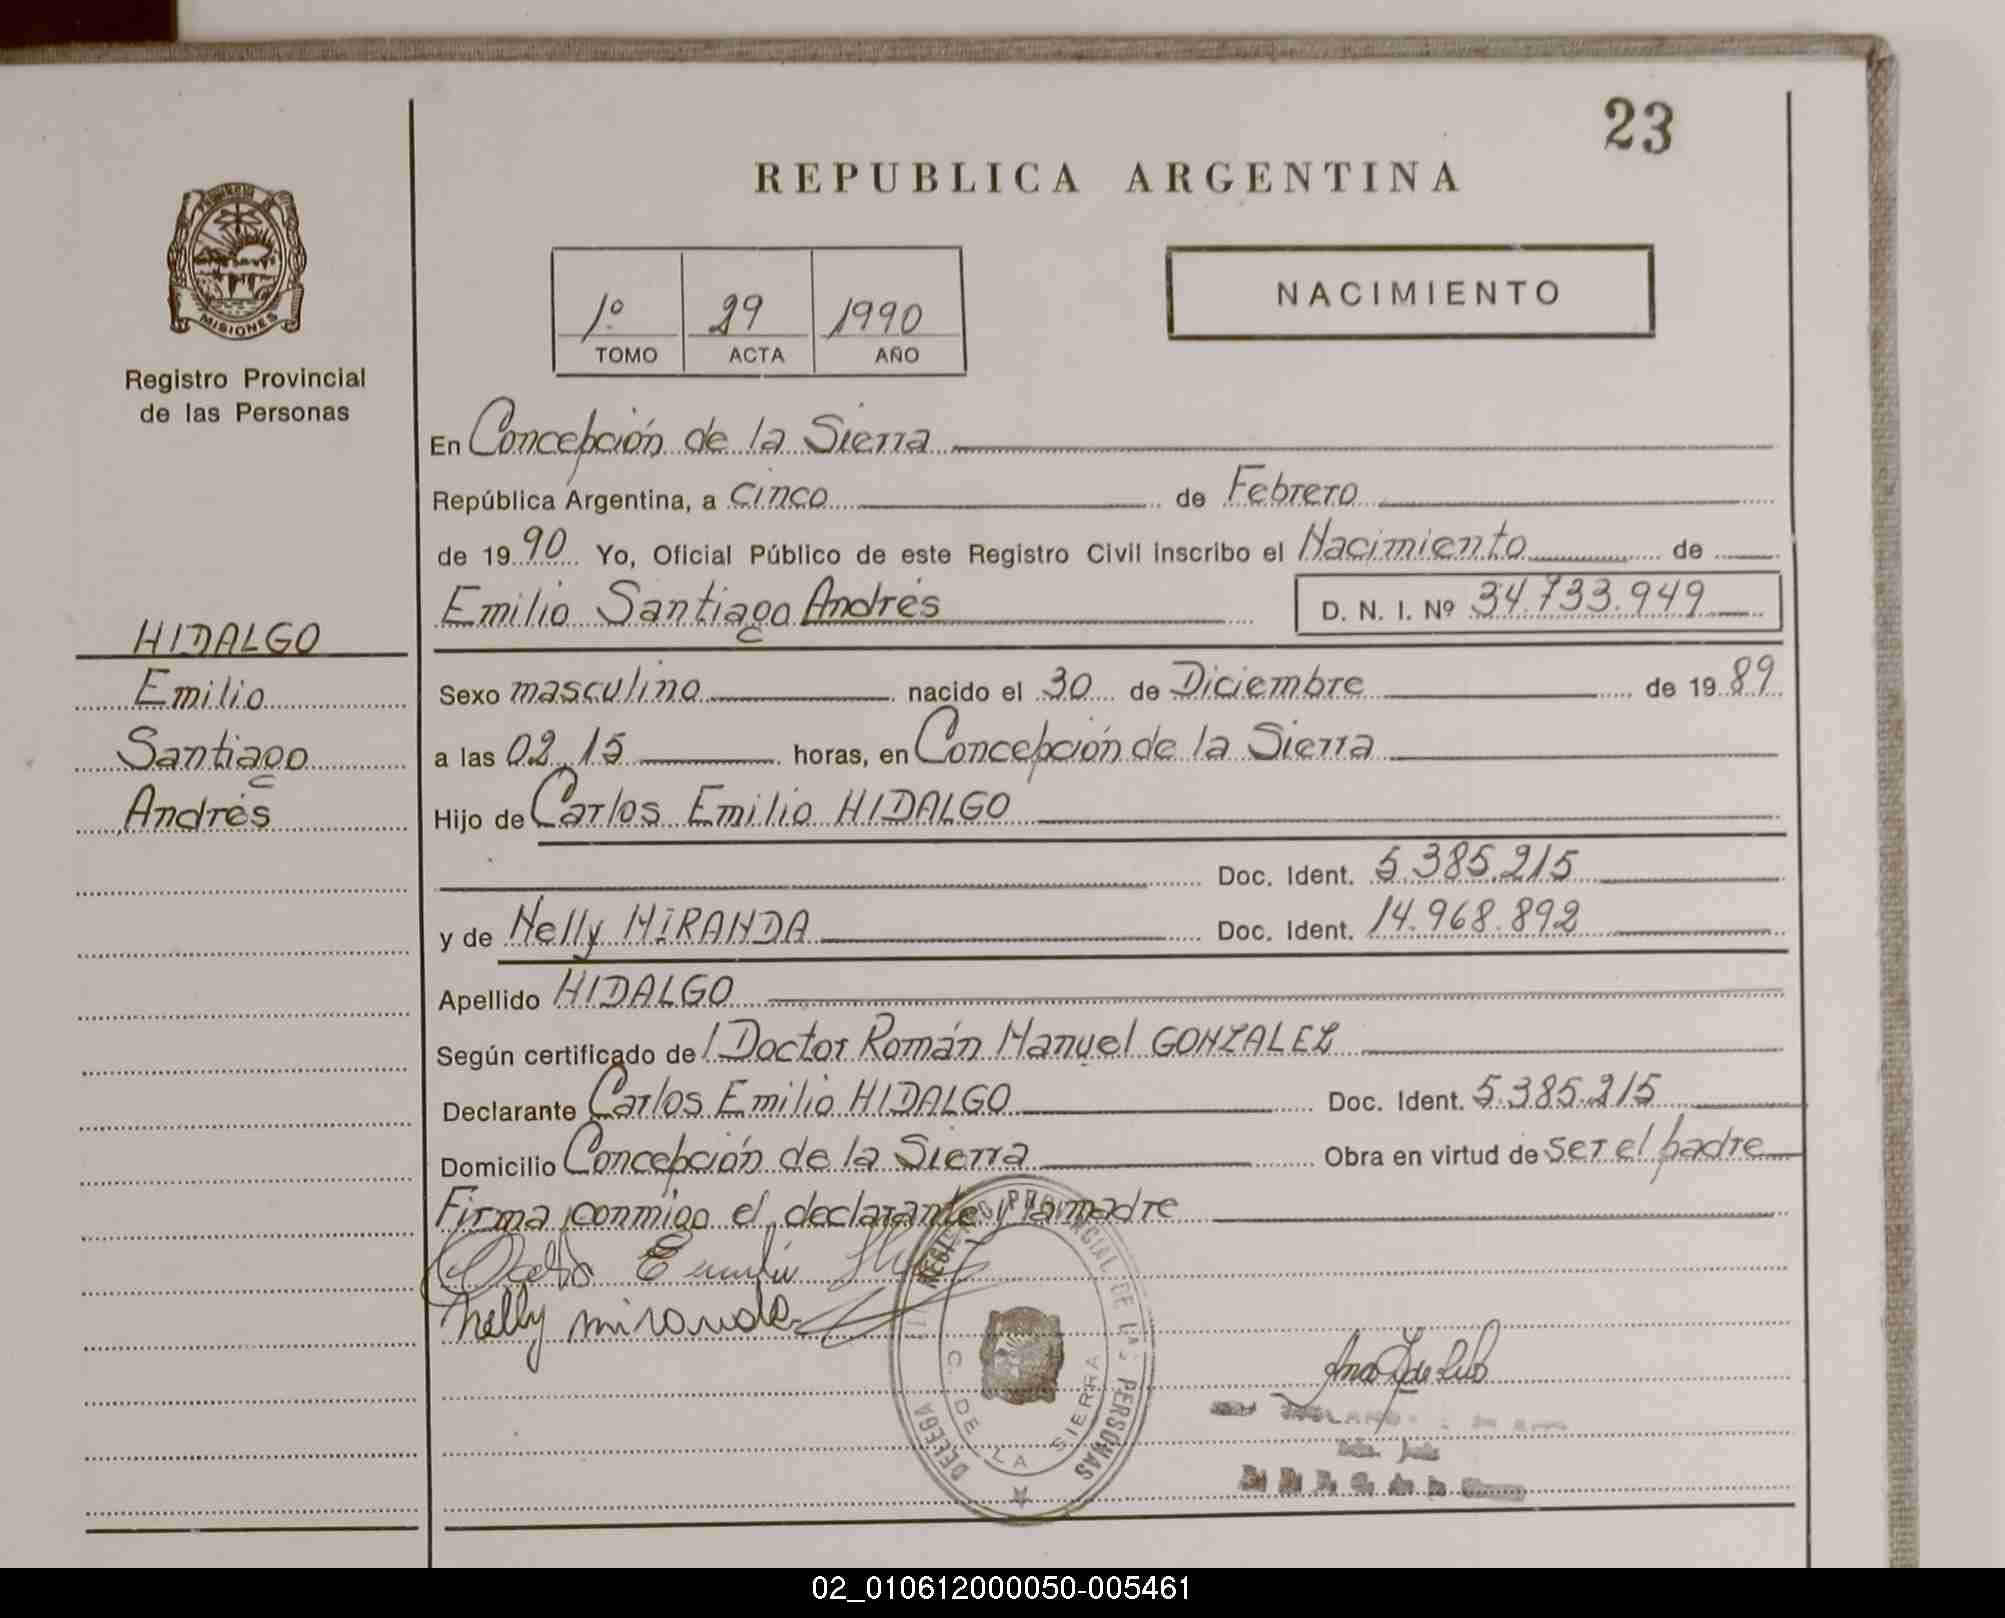 23
REPUBLICA ARGENTINA
MISIONES
1º 29 1990
TOMO ACTA AÑO
NACIMIENTO
Registro Provincial
de las Personas
En Concepción de la Sierra
República Argentina, a cinco de Febrero
de 1990 Yo, Oficial Público de este Registro Civil inscribo el Nacimiento de
Emilio Santiago Andrés D. N. I. Nº 34.733.949
HIDALGO
Emilio
Santiago
Andrés
Sexo masculino nacido el 30 de Diciembre de 1989
a las 02,15 horas, en Concepción de la Sierra
Hijo de Carlos Emilio HIDALGO
Doc. Ident. 5.385.215
y de Nelly MIRANDA Doc. Ident. 14.968.892
Apellido HIDALGO
Según certificado del Doctor Román Manuel GONZALEZ
Declarante Carlos Emilio HIDALGO Doc. Ident. 5.385.215
Domicilio Concepción de la Sierra Obra en virtud de ser el padre
Firma conmigo el declarante y la madre
Emilio
Nelly miranda
REGISTRO PROVINCIAL DE LAS PERSONAS
C. DE LA SIERRA
02_010612000050-005461